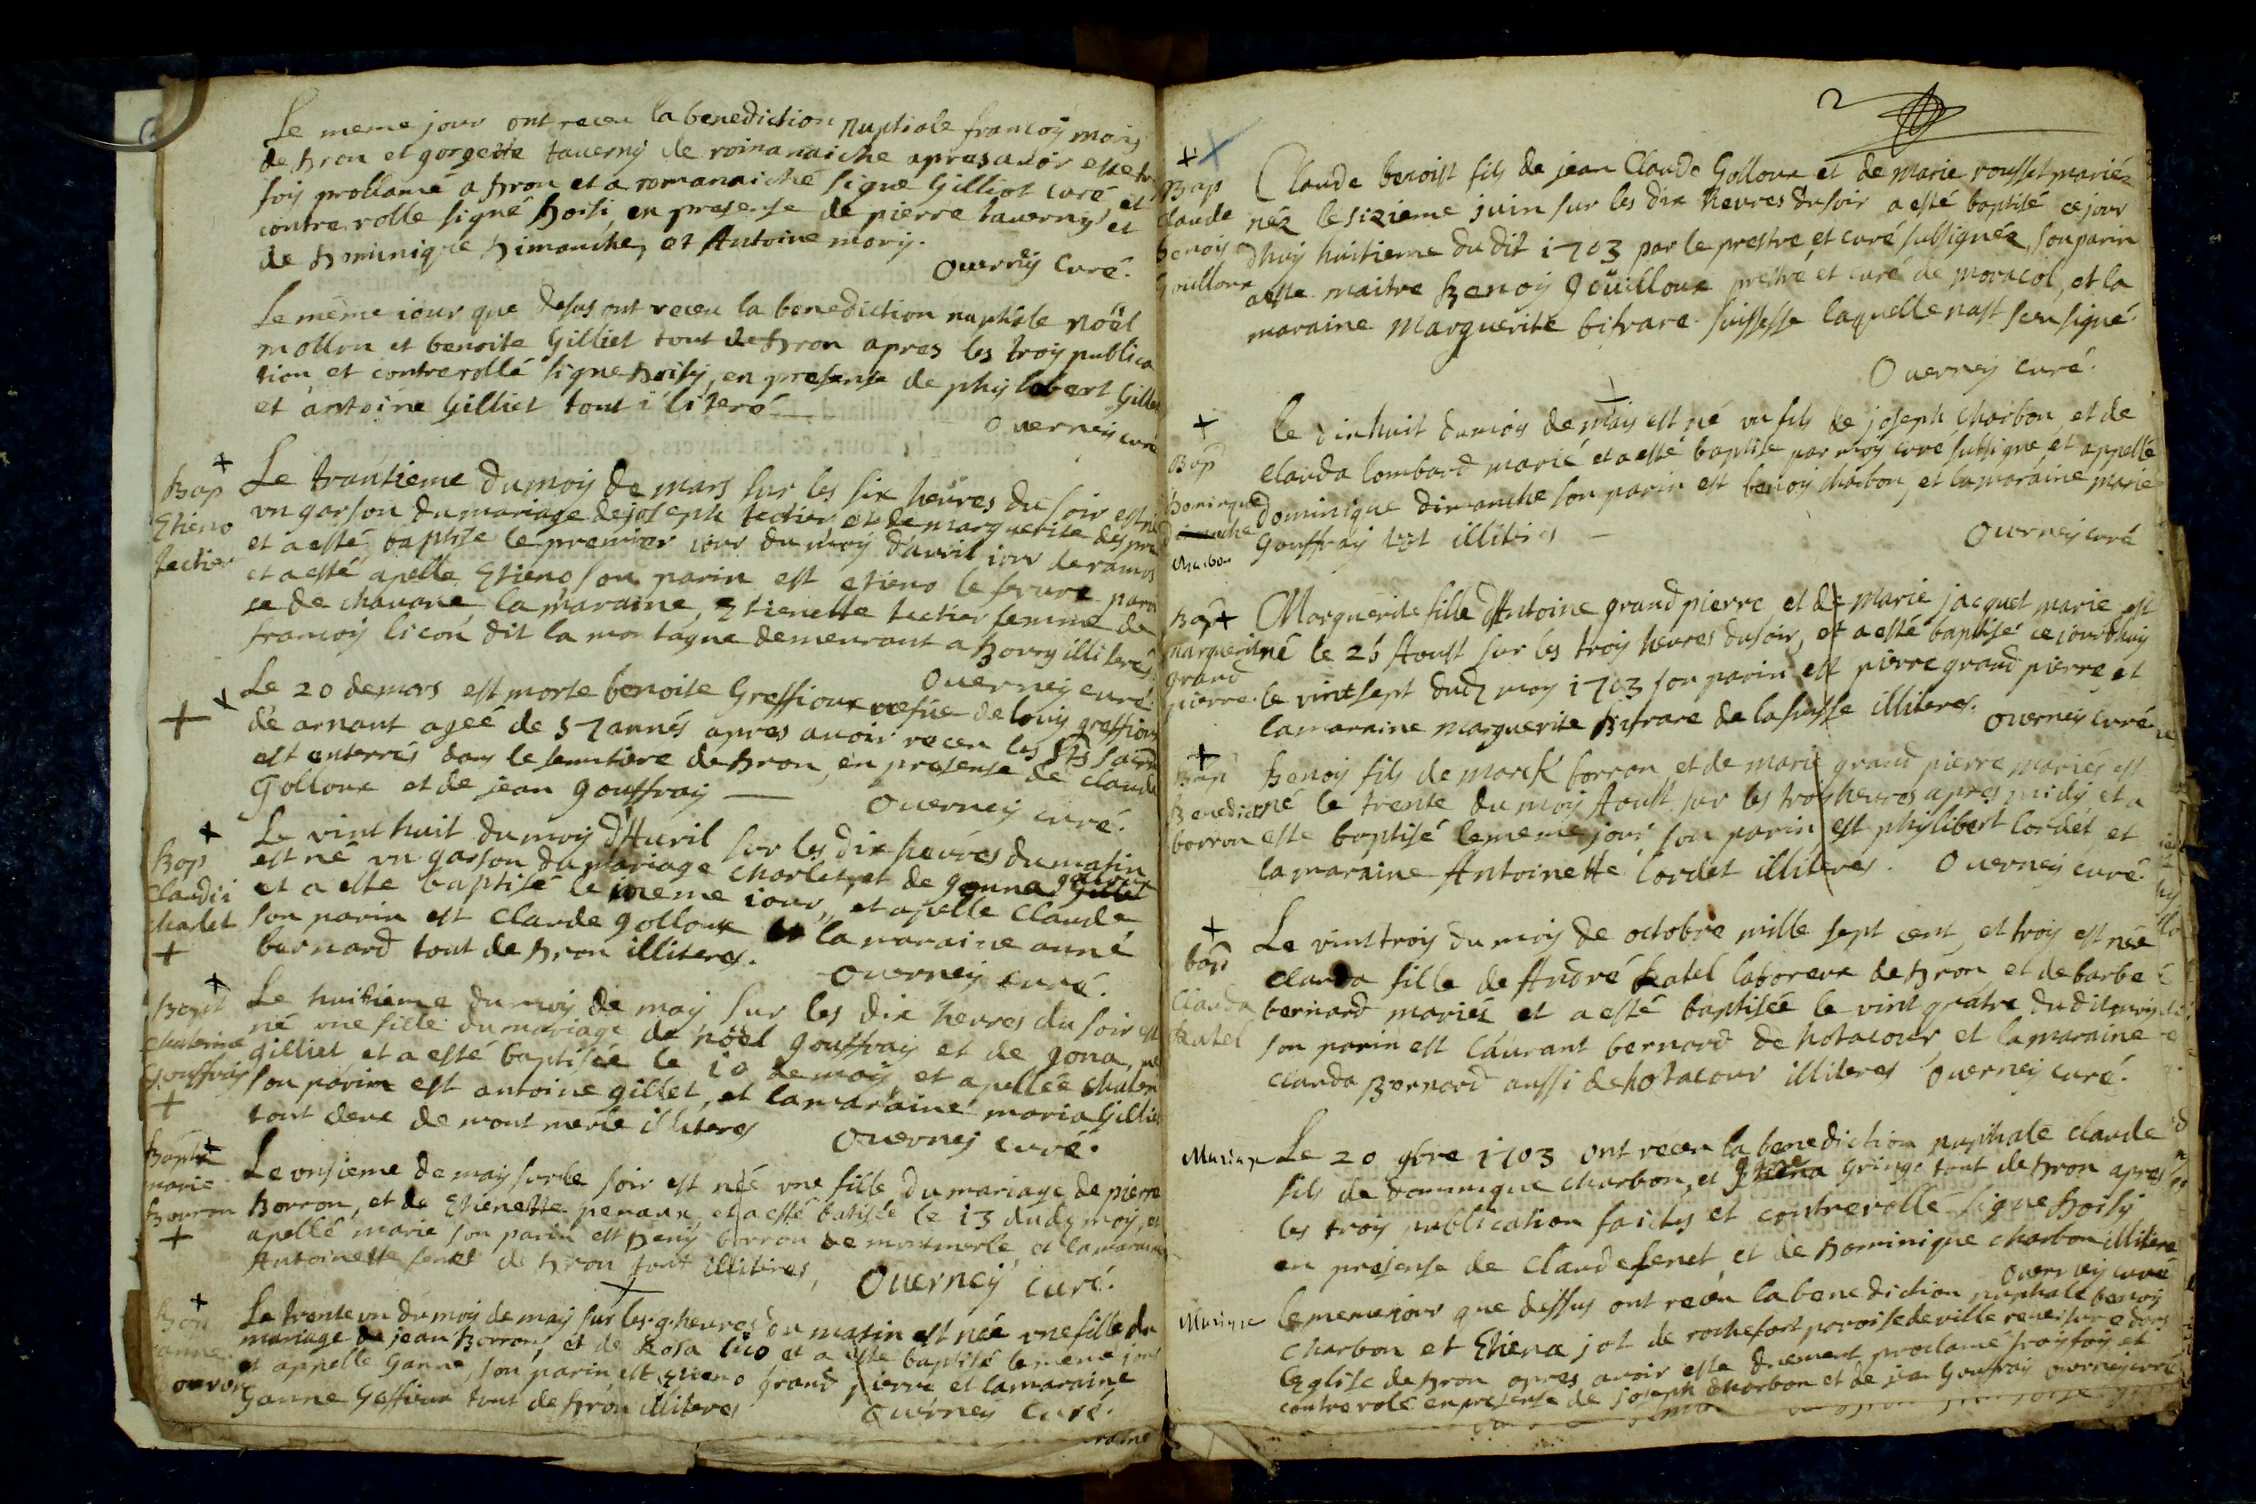 Le meme jour ont receu la benediction nuptiale francoy moris
de dron et gorgette taverny de romanaiche apres avoir esté
foy proclamé a dron et a romanaiche signé Gilliot curé et
contre rolle signé boisi en presense de pierre taverny et
de dominique dimanche, et Antoine moris.
Overney curé.
Le même iour que desus ont receu la benediction nuptiale nöel
mollon et benoite Gilliet tout de dron apres les troy publica
tion et contrerollé signe boisy, en presense de phylibert Gillet
et antoine Gilliet tout iliteré
Overney curé
Bap
Etieno
tectier
Le trantieme du moy de mars sur les six heures du soir est né
un garson du mariage de joseph tectier et de marguerite
et a esté baptise le premier iour du moy d'avril iour de ramos
et a esté apelle Etieno son parin est etieno le favre paroi
se de chavane la maraine, Etienette tectier femme de
francoy licon dit la montagne demeurant a bourg illiterés
Overney curé
Le 20 de mars est morte benoite Greffioux vefue de louis greffioux
de arnant ageé de 57 annés apres avoir receu les Sts Sacre
est enterrés dans le semitiere de dron, en presense de claude
Golloux et de jean Gouffray
Overney curé.
Bap
Claudii
charlet
Le vint huit du moy d'Avril sur les dix heures du matin
est né un garson du mariage charlet, et de
et a esté baptisé le meme iour, et apelle Claude
son parin est Claude Golloux la maraine anne
bernard tout de dron illiteres.
Overney curé.
Bapt
chaterine
Gouffray
Le huitieme du moy de may sur les dix heures du soir est
né une fille du mariage de nöel Gouffray et de gona,
gilliet et a esté baptisée le 10 de may et apellée chaterine
son parin est antoine gillet, et la maraine maria Gilliet
tout deux de mont merlé illiteres
Overney curé.
Bapte
marie
Borron
Le onsieme de may sur le soir est née une fille du mariage de pierre
Borron, et de Etienette penaux, et a esté batisée le 13 dudz moy, et
apellé marie son parin est Deny borron de montmerle et la maraine
Antoinette fenet de dron tout illiteres,
Overney curé.
Bon
anne
orron
Le trente un du moy de may sur les 9 heures du matin est née une fille du
mariage de jean Borron, et de Rosa lico et a esté baptisé le meme jour
et appelle Ganne, son parin est Etieno Grand pierre et la maraine
Ganne Geffioux tout de dron illiteres
Overney curé.
2
Bap
Claude
benoy
Goulloux
Claude benoist fils de jean Claude Golloux et de marie rousset mariéz
néz le sizieme juin sur les dix heures du soir a esté baptisé ce jour
dhuy huitieme du dit 1703 par le prestre et curé subsignéz, son parin
a esté maitre Benoy Goüilloux prestre et curé de moracol, et la
maraine marguerite bifrare suissesse laquelle nast seu signé.
Overney curé.
Bap
Dominique
Dimanche
charbon
Le dixhuit du moy de may est né un fils de joseph Charbon, et de
Clauda lombard marié et a esté baptise par moy curé subsigne, et appellé
dominique dimanche son parin est benoy charbon, et la maraine marie
Gouffray tout illiteres
Overney curé
Bap
marguerit
grand
pierre
Marguerite fille d'Antoine grand pierre et de marie jacquet marié est
né le 26 Aoust sur les troy heures du soir, et a esté baptisé ce jourdhuy
le vintsept dudz moy 1703 son parin est pierre grand pierre et
la maraine marguerite bifrare de la suisse illiteres.
Overney curé
Bap
Benedict
borron
Benoy fils de marck borron, et de marie grand pierre mariés est
né le trente du moy Aoust sur les troy heures apres midy, et a
este baptisé le meme jour son parin est phylibert Cordet, et
la maraine Antoinette Cordet illiteres.
Overney curé.
bap
Clauda
Ratel
Le vint troy du moy de octobre mille sept cent, et troy est née
clauda fille de André Ratel laboreux de dron, et de barbe
bernard mariéz et a esté baptisée le vint quatre du dit moy
son parin est Laurant bernard de hotacour, et la maraine
clauda Bernard aussi de hotacour illiteres Overney curé.
Mariage
Le 20 9bre 1703 ont receu la benediction nuptiale claude
fils de Dominique charbon, et Gringe tout de dron apres
les troy publication faictes et contrerollé signe boisy
en presense de Claude fenet, et de Dominique charbon illitere
Overney curé
Mariage
le meme jour que dessus ont receu la benediction nuptiale benoy
charbon et Etiena jot de rochefort paroise de ville reversure dans
l'Eglise de dron apres avoir esté duement proclamé troy foy et
contrerolé en presense de joseph charbon et de jean Gouffray overney curé